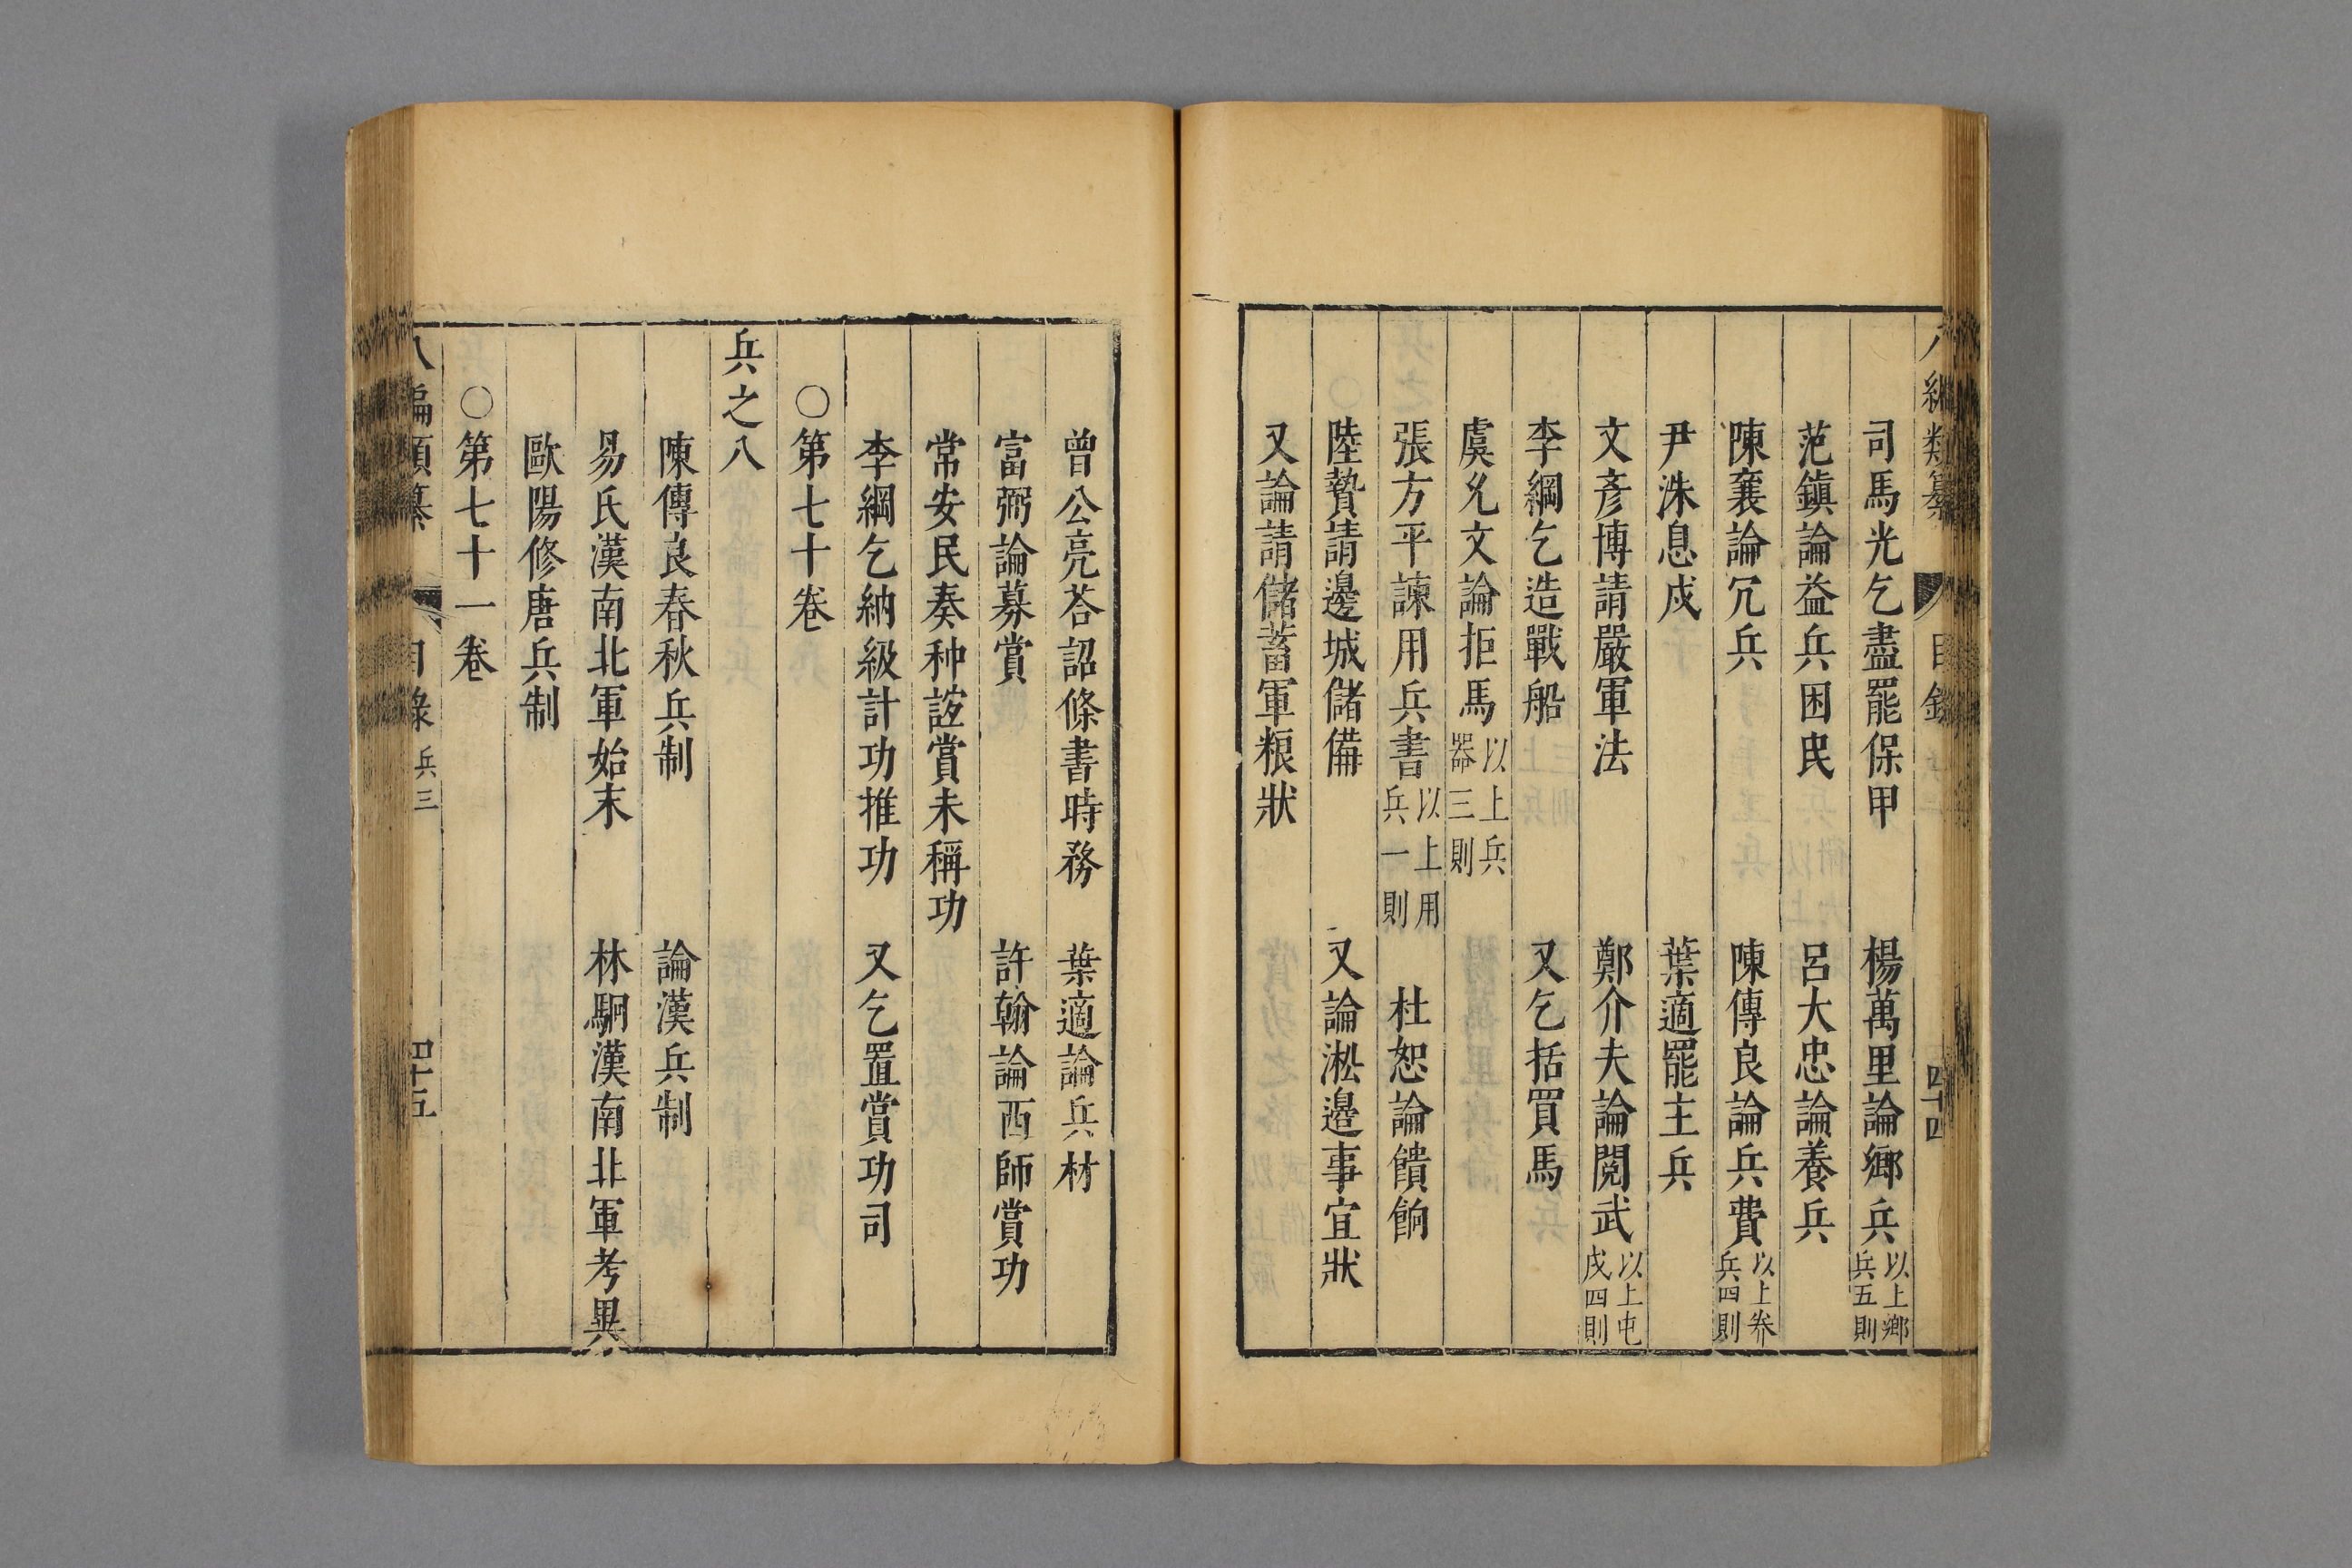 編類纂 目錄 四十四
司馬光乞盡罷保甲 楊萬里論鄉兵以上鄉兵五則
范鎮論益兵困民 呂大忠論養兵
陳襄論冗兵 陳傅良論兵費以上養兵四則
尹洙息戍 葉適罷主兵
文彥博請嚴軍法 鄭介夫論閱武以上屯戍四則
李綱乞造戰船 又乞括買馬
虞允文論拒馬以上兵器三則
張方平諫用兵書以上用兵一則 杜恕論饋餉
陸贄請邊城儲備 又論淞邊事宜狀
又論請儲蓄軍粮狀
曾公亮荅詔條書時務 葉適論兵材
富弼論募賞 許翰論西師賞功
常安民奏种誼賞未稱功
李綱乞納級計功推功 又乞置賞功司
○第七十卷
兵之八
陳傅良春秋兵制 論漢兵制
易氏漢南北軍始末 林駉漢南北軍考異
歐陽修唐兵制
○第七十一卷
八編類纂 目錄 兵三 四十五